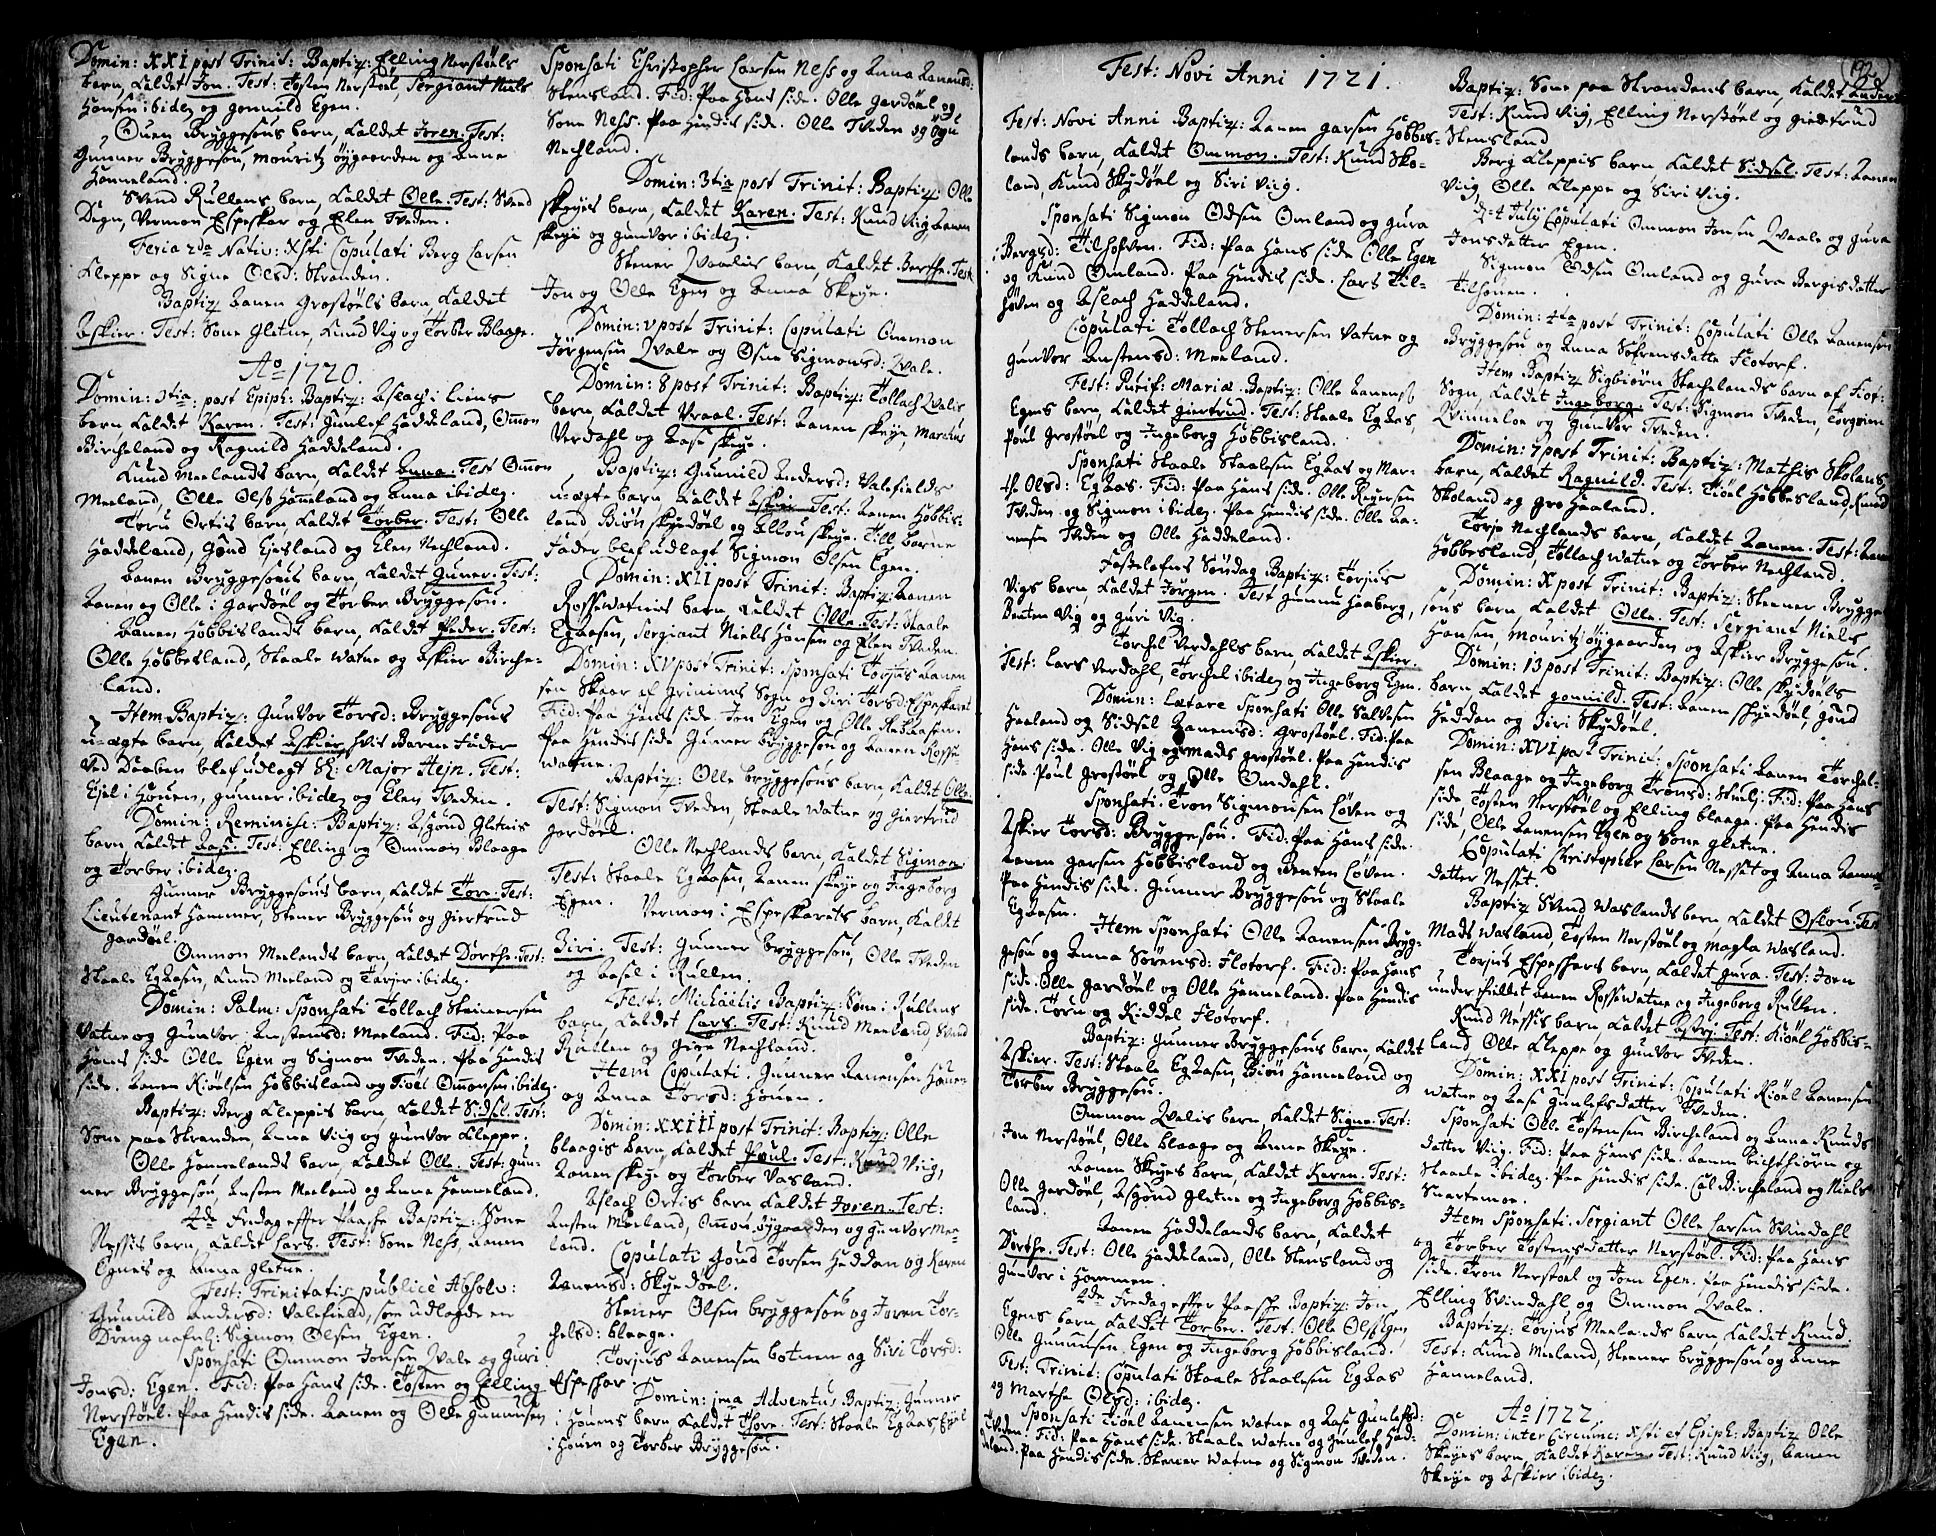 Domin: XXI post Trinit: Baptiz: Elling Nerstöels
barn, kaldet Jon. Test: Tosten Nerstoel, Sergiant Niels
Hansen ibidem og gonnild Egen.
Ouen Bryggesøus barn, kaldet Joren. Test:
Gunner Bryggesøu, Mouritz øygaarden og Anna
Honneland.
Svend Rullens barn, kaldet Olle. Test: Svend
Degn, Vermon Espeskar og Elen Tveden.
Feria 2da Nativ: Xsti Copulati Berg Larsen
Kleppe og Signe Olsd: Stranden.
Baptiz Aanen Grostöels barn, kaldet
Askier. Test: Sone Gletne, Knud Vig og Torber Blaage.
Ao 1720.
Domin: 3tia post Epiph: Baptiz: Aslach i Liens
barn kaldet Karen. Test: Gunlef Haddeland, Ommon
Bircheland og Ragnild Haddeland.
Knud Meelands barn, kaldet Anna. Test Ommon
Meeland, Olle Ols Honneland og Anna ibidem.
Toru Ortis barn, kaldet Torber. Test: Olle
Haddeland, Gond Ejesland og Elen Nechland.
Aanen Bryggesøus barn, kaldet Guner. Test:
Aanen og Olle i Gardöel og Torber Bryggesøu.
Aanen Hobbislands barn, kaldet Peder. Test:
Olle Hobbesland, Staale Watne og Askier Birche-
land.
Item Baptiz: Gunvor Torsd: Bryggesøus
u-ægte barn, kaldet Askier, hvis Barne Fader
ved Daaben blef udlagt Hr: Major Hejn. Test:
Ejel i Houen, gunner ibidem og Elen Tveden.
Domin: Reminisc: Baptiz: Asgond Gletnis
barn kaldet Aase. Test: Elling og Ommon Blaage
og Torber ibidem.
Gunner Bryggesøus barn, kaldet Tore. Test:
Lieutenant Hammer, Stener Bryggesøu og Giertrud
gardøel.
Ommon Meelands barn, kaldet Dorthe. Test:
Staale Egaasen, Knud Meeland og Torjer ibidem.
Domin: Palm: Sponsati Tollach Steinersen
Vatne og Gunvor Anstensd: Meeland. Fid: Paa
Hans side Olle Egen og Sigmon Tveden. Paa Hendis
side. Aanen Kiöelsen Hobbisland og Tiöel Ommonsen ibidem.
Baptiz: Berg Kleppis barn, kaldet Sidsel. Test:
Sone paa Stranden, Anna Viig og gunvor Kleppe.
Olle Honnelands barn, kaldet Olle. Test: Gun-
ner Bryggesøu, Ansten Meeland og Anna Honneland.
4de Fredag effter Paasche Baptiz: Sone
Nessis barn, kaldet Lars. Test: Sone Ness, Aanen
Egnes og Anna Gletne.
Fest: Trinitatis publice Absolv:
Gunnild Andersd: Valefield, som udlagde en
Dreng nafnl: Sigmon Olsen Egen.
Sponsati Ommon Jonsen Qvale og Guri
Jonsd: Egen. Fid: Paa Hans side. Tosten og Elling
Nerstöel. Paa Hendis side. Aanen og Olle Gununsen
Egen.
Sponsati Christopher Larsen Ness og Anna Aanensd:
Stensland. Fid: Paa Hans side. Olle Gardöel og
Sone Ness. Paa Hendis side. Olle Tveden og
Nechland.
Domin: 3tia post Trinit: Baptiz Olle
Skeyes barn, kaldet Karen. Test: Knud Viig Aanen
Skeye og gunvor ibidem.
Stener Qvalis barn, kaldet Berthe. Test.
Jon og Olle Egen og Anna Skeye.
Domin: V post Trinit: Copulati Ommon
Jörgensen Qvale og Osne Sigmonsd: Qvale.
Domin: 8 post Trinit: Baptiz: Tollach Qvalis
barn, kaldet Vraal. Test: Aanen Skeye, Marchus
Verdahl og Aase Skeye.
Baptiz: Gunnild Andersd: Valefields
u-ægte barn, kaldet Askier. Test: Aanen Hobbis-
land Biøn Skyedöel og Allou Skeye. Till barne
Fader blef udlagt Sigmon Olsen Egen.
Domin: XII post Trinit: Baptiz: Aanen
Rossewatnis barn, kaldet Olle. Test: Staale
Egaasen, Sergiant Niels Hansen og Elen Tveden.
Domin: XV post Trinit: Sponsati Torjus Aanen
sen Skaar af Grinims Sogn og Siri Torsd: Espeskaret
Fid: Paa Hans side. Jon Egen og Olle Rabaasen.
Paa Hendis side Gunner Bryggesøu og Aanen Rosse
watne.
Baptiz: Olle Bryggesøus barn, kaldet Olle.
Test: Sigmon Tveden, Staale Watne og Giertrud
gardöel.
Olle Nechlands barn, kaldet Sigmon.
Test: Staale Egaasen, Aanen Skeye og Ingeborg
Egen.
Vermon i Espeskarets barn, kaldet
Siri. Test: Gunner Bryggesøu, Olle Tveden
og Aasel i Rullen.
Fest: Michaelis Baptiz: Sone i Rullens
barn, kaldet Lars. Test: Knud Meeland, Svend
Rullen og Geiru Nechland.
Item Copulati. Gunner Aanensen Houen
og Anna Torsd: Houen.
Domin: XXIII post Trinit: Baptiz: Olle
blaagis barn, kaldet Poul. Test: Knud Viig,
Aanen Skeye og Torber Vasland.
Aslach Ortis barn kaldet Joren. Test:
Ansten Meeland, Ommon øygaarden og gunvor Mee-
land.
Copulati Gond Torsen Haddan og Karen
Aanensd: Skyedoel.
Steiner Olsen Bryggesøu og Joren Tor-
chelsd: blaage.
Torjus Aanensen botnen og Siri Torsd:
Espeskar.
Domin: 1ma Adventus Baptiz: Gunner
i Houens barn kaldet Thore. Test: Staale Egaas, Ejel
i Houen og Torber Bryggesøu.
Fest: Novi Anni 1721.
Fest: Novi Anni Baptiz: Aanen Garsen Hobbes-
lands barn, kaldet Ommon. Test: Knud Sko-
land, Knud Skydöel og Siri Viig.
Sponsati Sigmon Odsen Omland og gura
Bergsd: Tilhoven. Fid: Paa Hans side Olle Egen
og Knud Omland. Paa Hendis side. Lars Til-
höven og Aslach Haddeland.
Copulati Tollach Stenersen Vatne og
Gunvor Anstensd: Meeland.
Fest: Purif: Mariæ. Baptiz: Olle Aanens
Egens barn, kaldet Giertrud. Test: Staale Egaas,
Poul Grostöel og Ingeborg Hobbisland.
Sponsati Staale Staalesen Egaas og Mar-
the Olsd: Egaas. Fid: Paa Hans side. Olle Reyersen
Tveden og Sigmon ibidem. Paa Hendis side. Olle Aa-
nensen Tveden og Olle Haddeland.
Fastelafns Söndag Baptiz: Torjus
Vigs barn, kaldet Jörgen. Test Gunnu Haaberg,
Beuten Vig og guri Vig.
Torchel Verdahls barn, kaldet Askier.
Test: Lars Verdahl, Torchel ibidem og Ingeborg Egen.
Domin: Lætare Sponsati Olle Salvesen
Haaland og Sidsel Aanensd: Grostöel. Fid: Paa
Hans side. Olle Vig og Mads Grostöel. Paa Hendis
side Poul Grostöel og Olle Omdahl.
Sponsati: Tron Sigmonsen Löven og
Askier Torsd: Bryggesøu. Fid: Paa Hans side.
Aanen Garsen Hobbisland og Benten Löven.
Paa Hendis side. Gunner Bryggesøu og Staale
Egaasen.
Item Sponsati Olle Aanensen Bryg-
gesøu og Anna Sörensd: Flotorf. Fid: Paa Hans
side. Olle Gardöel og Olle Honneland. Paa Hendis
side. Toru og Kiddel Flotorf.
Baptiz: Gunner Bryggesøus barn, kaldet
Askier. Test: Staale Egaasen, Biön Honneland og
Torber Bryggesøu.
Ommon Qvalis barn, kaldet Signe. Test:
Jon Nerstöel, Olle Blaage og Anne Skeye.
Aanen Skeyes barn, kaldet Karen. Test:
Olle Gardöel, Asgond Gletne og Ingeborg Hobbis-
land.
Aanen Haddelands barn, kaldet
Dorthe. Test: Olle Haddeland, Olle Stensland og
Gunvor i Hommen.
4de Fredag effter Paasche Baptiz: Jon
Egens barn, kaldet Torber. Test: Olle Ols Egen,
Olle Gununsen, Egen og Ingeborg Hobbisland.
Fest: Trinit: Copulati Staale Staalesen Egaas
og Marthe Olsd: ibidem.
Sponsati Tiöel Aanensen Watne og Aase Gunlefsd:
Tveden. Fid: Paa Hans side. Staale Watne og Gunlef Had-
deland. Paa Hendis side. Stener Watne og Sigmon Tveden.
192
Baptiz: Sone paa Strandens barn, kaldet Anders.
Test: Knud Viig, Elling Nerstöel og Giedtrud
Stensland
Berg Kleppis barn kaldet Sidsel. Test: Aanen
Viig, Olle Kleppe og Siri Viig.
July Copulati Ommon Jonsen Qvaale og Gura
Jonsdatter Egen.
Sigmon Odsen Omland og Gura Bergisdatter
Tilhouen.
Domin: 4ta post Trinit: Copulati Olle Aanensen
Bryggesøu og Anna Sofrensdatte Flotorf.
Item Baptiz Sigbiörn Stachelands barn af Fiot:
Sogn, kaldet Ingeborg. Test: Sigmon Tveden, Torgrim
Qvinneloe og Gunvor Tveden.
Domin: 7 post Trinit: Baptiz: Mathis Skolans
barn, kaldet Ragnild. Test: Tiöel Hobbesland, Knud
Skoland og Gro Haaland.
Torje Nechlands barn, kaldet Aanen. Test: Aanen
Hobbesland, Tollach Watne og Torber Nechland.
Domin: X post Trinit: Baptiz: Steener Brygge
søus barn, kaldet Olle. Test: Sergiant Niels
Hansen, Mouritz øygaarden og Askier Bryggesøu.
Domin: 13 post Trinit: Baptiz: Olle Skydöels
barn kaldet gonnild. Test: Aanen Skyedöel, Gond
Haddan og Siri Skydöel.
Domin: XVI post Trinit: Sponsati Aanen Torchel-
sen Blaage og Ingeborg Tronsd: Skeie. Fid: Paa Hans
side, Tosten Nerstöel og Elling Blaage. Paa Hendis
side, Olle Aanensen Egen og Sone Gletne.
Copulati Christopher Larsen Nesset og Anna Aanens
datter Nesset.
Baptiz Svend Waslands barn, kaldet Oslou. Test
Mads Wasland, Tosten Nerstöel og Magla Wasland.
Torjus Espeskars barn, kaldet Gura. Test: Joren
Understuldet Aanen Rossewatne og Ingeborg Rullen.
Knud Nessis barn, kaldet Astri. Test: Kiöel Hobbis-
land Olle Kleppe og Gunvor Tveden.
Domin: XXI post Trinit: Copulati Kiöel Aanensen
Watne og Aase Gunlefsdatter Tveden.
Sponsati Olle Tostensen Bircheland og Anna Knuds
datter Viig. Fid: Paa Hans side. Aanen Lichthiörn og
Staale ibidem. Paa Hendis side. Eil Bircheland og Niels
Snartemoe.
Item Sponsati: Sergiant Olle Larsen Svindahl
og Torber Tostensdatter Nerstöel. Fid: Paa Hans
side. Tron Nerstoel og Joen Egen. Paa Hendis side.
Elling Svindahl og Ommon Qvale.
Baptiz: Torjus Meelands barn, kaldet Knud.
Test: Knud Meeland, Steener Bryggesøu og Anne
Honneland.
Ao 1722.
Domin: inter Circumc: Xsti et Epiph: Baptiz Olle
Skeyes barn, kaldet Karen. Test: Knud Viig, Aanen
Skeye og Askier ibidem.